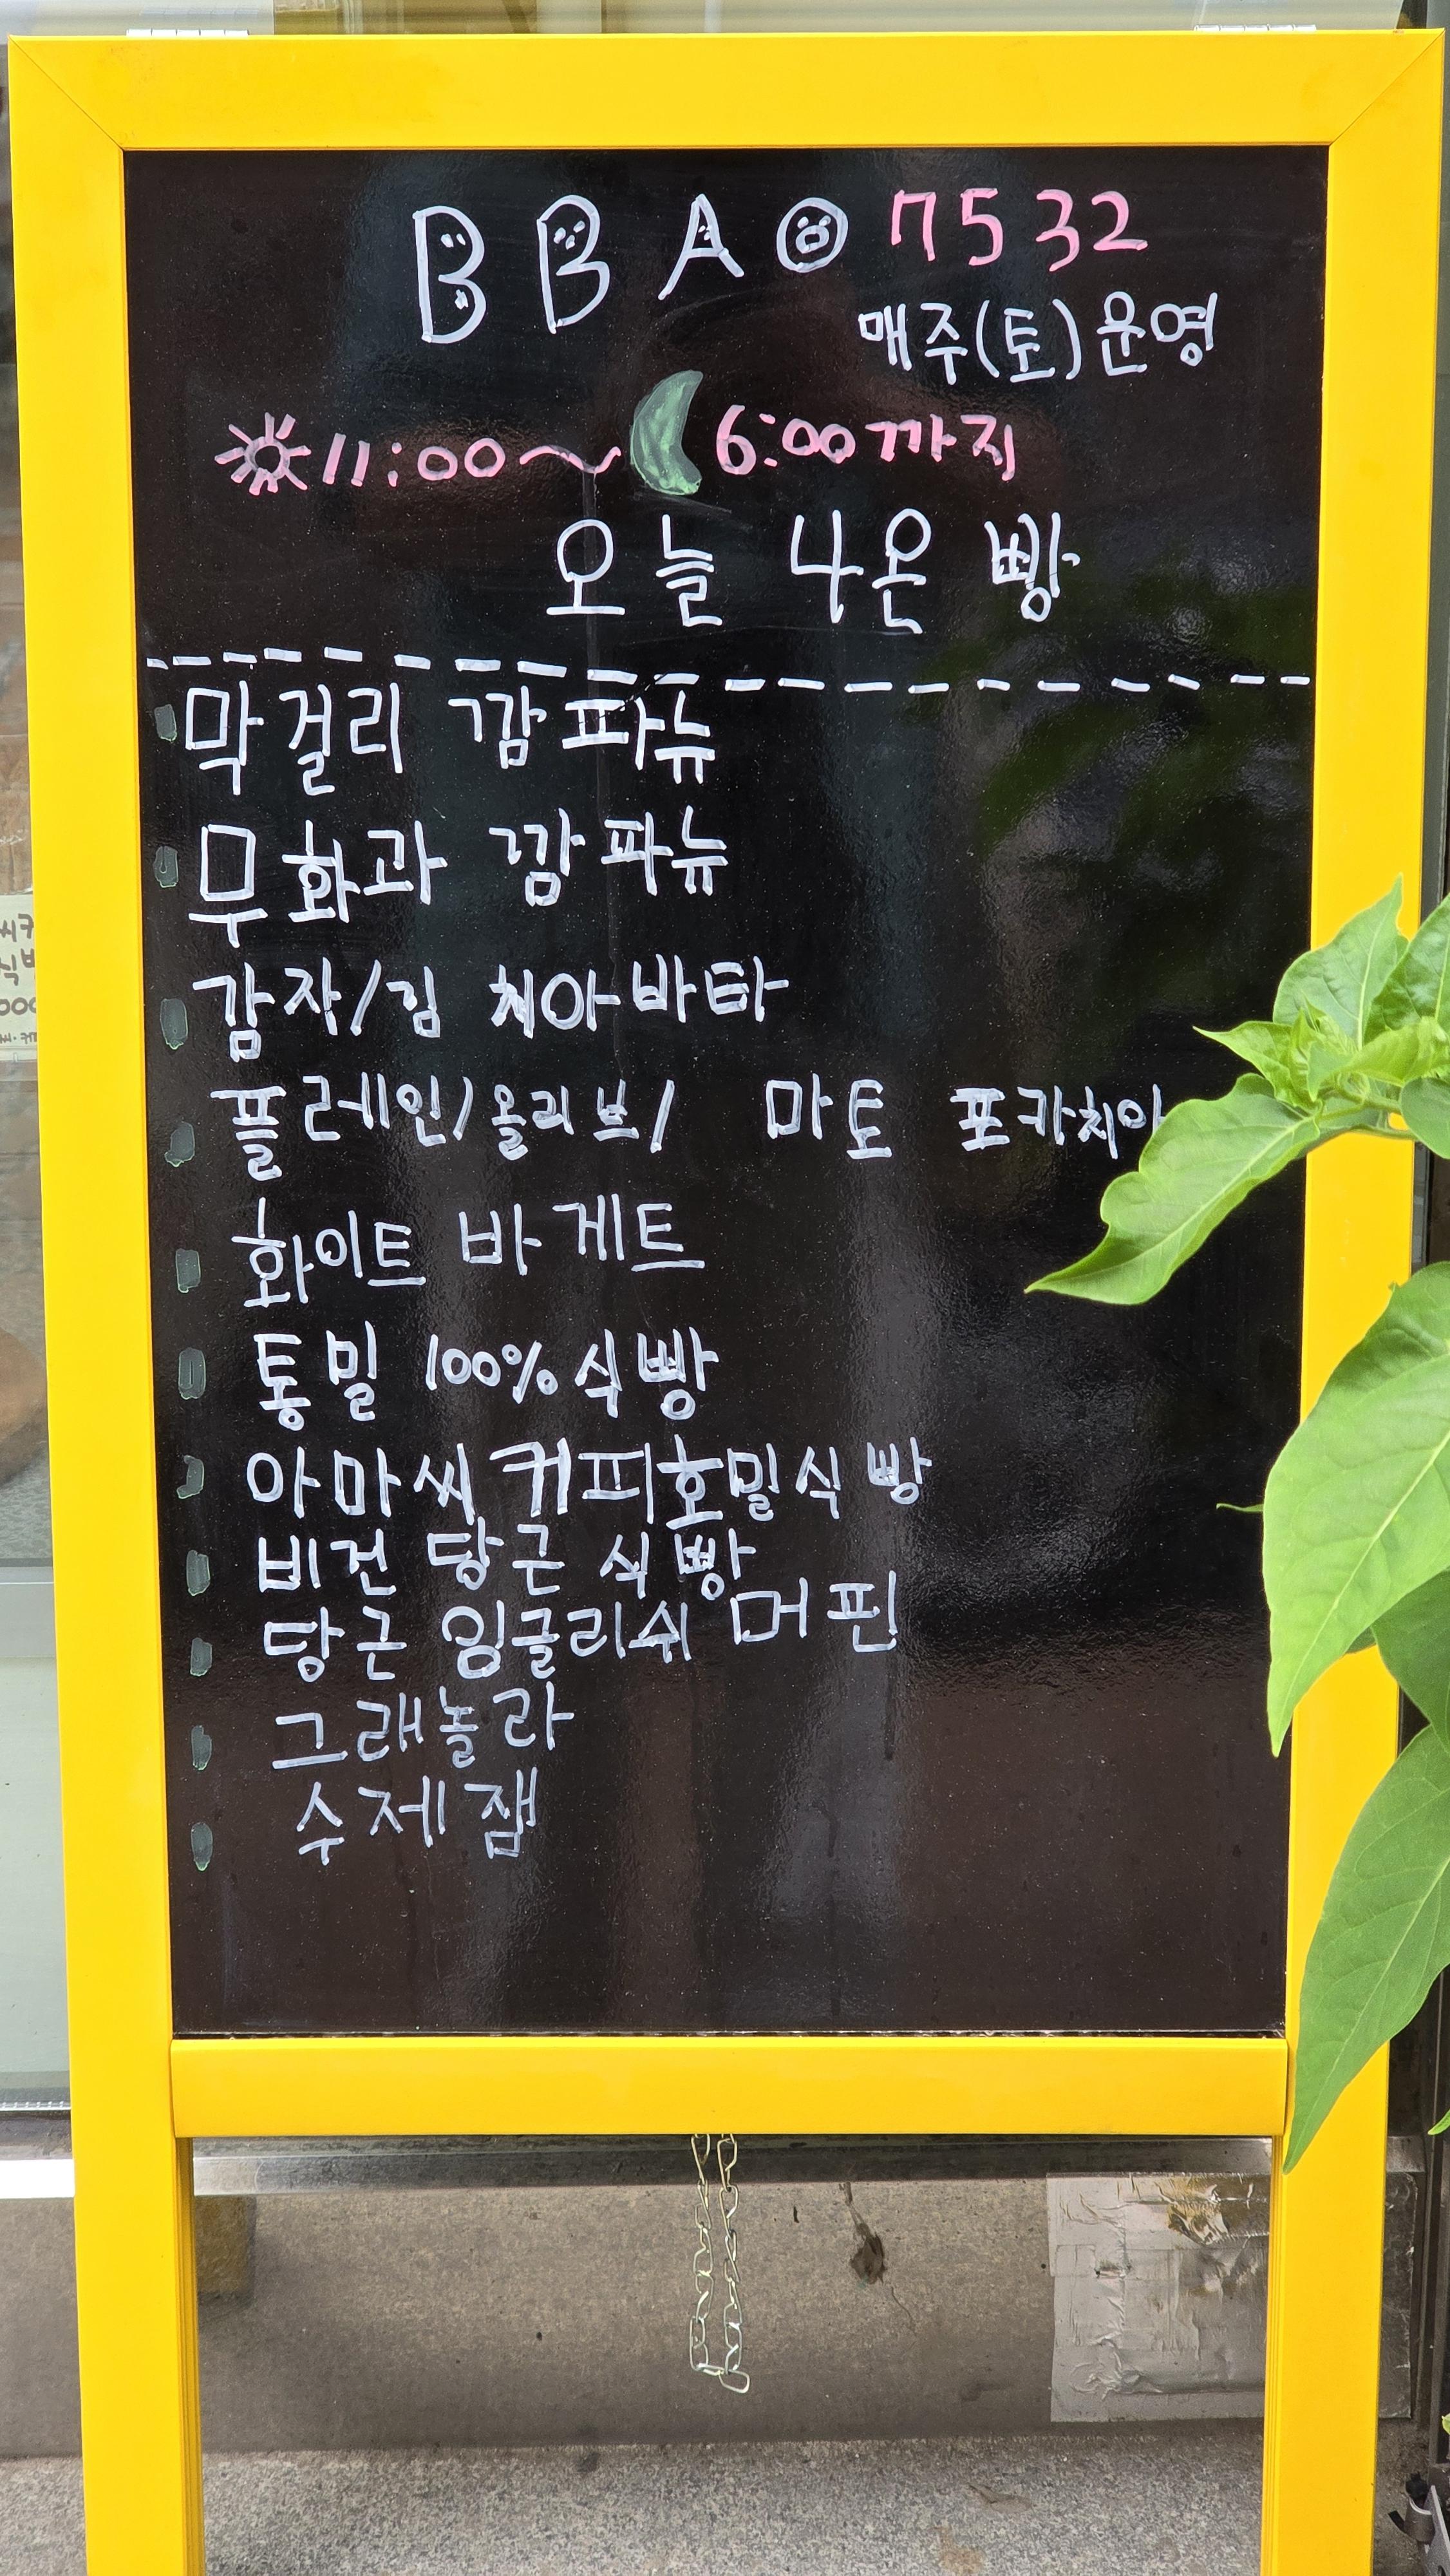 BBAO 7532
매주(토)운영
11:00~6:00까지
오늘 나온 빵
막걸리 깜파뉴
무화과 깜파뉴
감자/김 치아바타
플레인/올리브/ 마토 포카치아
화이트 바게트
통밀 100% 식빵
아마씨 커피호밀식빵
비건 당근 식빵
당근 잉글리쉬 머핀
그래놀라
수제잼